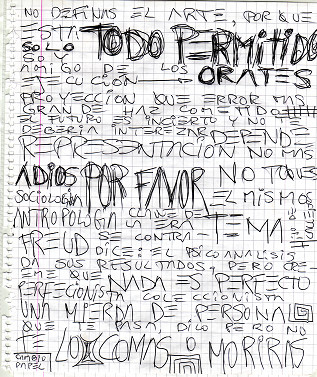 NO DEFINAS EL ARTE, PORQUE
ESTA TODO PERMITIDO
SOLO
SOY
AMIGO DE LOS ORATES
PROYECCION QUE ERROR MAS
GRANDE HAZ COMETIDO
EL FUTURO ES INCIERTO Y NO
DEBERIA INTEREZAR DEPENDE
REPRESENTACION NO MAS
ADIOS POR FAVOR NO TOQUES
SOCIOLOGIA EL MISMO
ANTROPOLOGIA CLANE DE LA ERA TEMA
FREUD SE CONTRA-
DICE: EL PSICOANALISIS
DA SUS RESULTADOS, PERO CRE-
EME QUE NADA ES PERFECTO
PERFECIONISTA COLECCIONISTA
UNA MIERDA DE PERSONA
QUE TE PASA, DILO PERO NO
TE LO COMAS O MORIRAS
CAMBIO
PAPEL